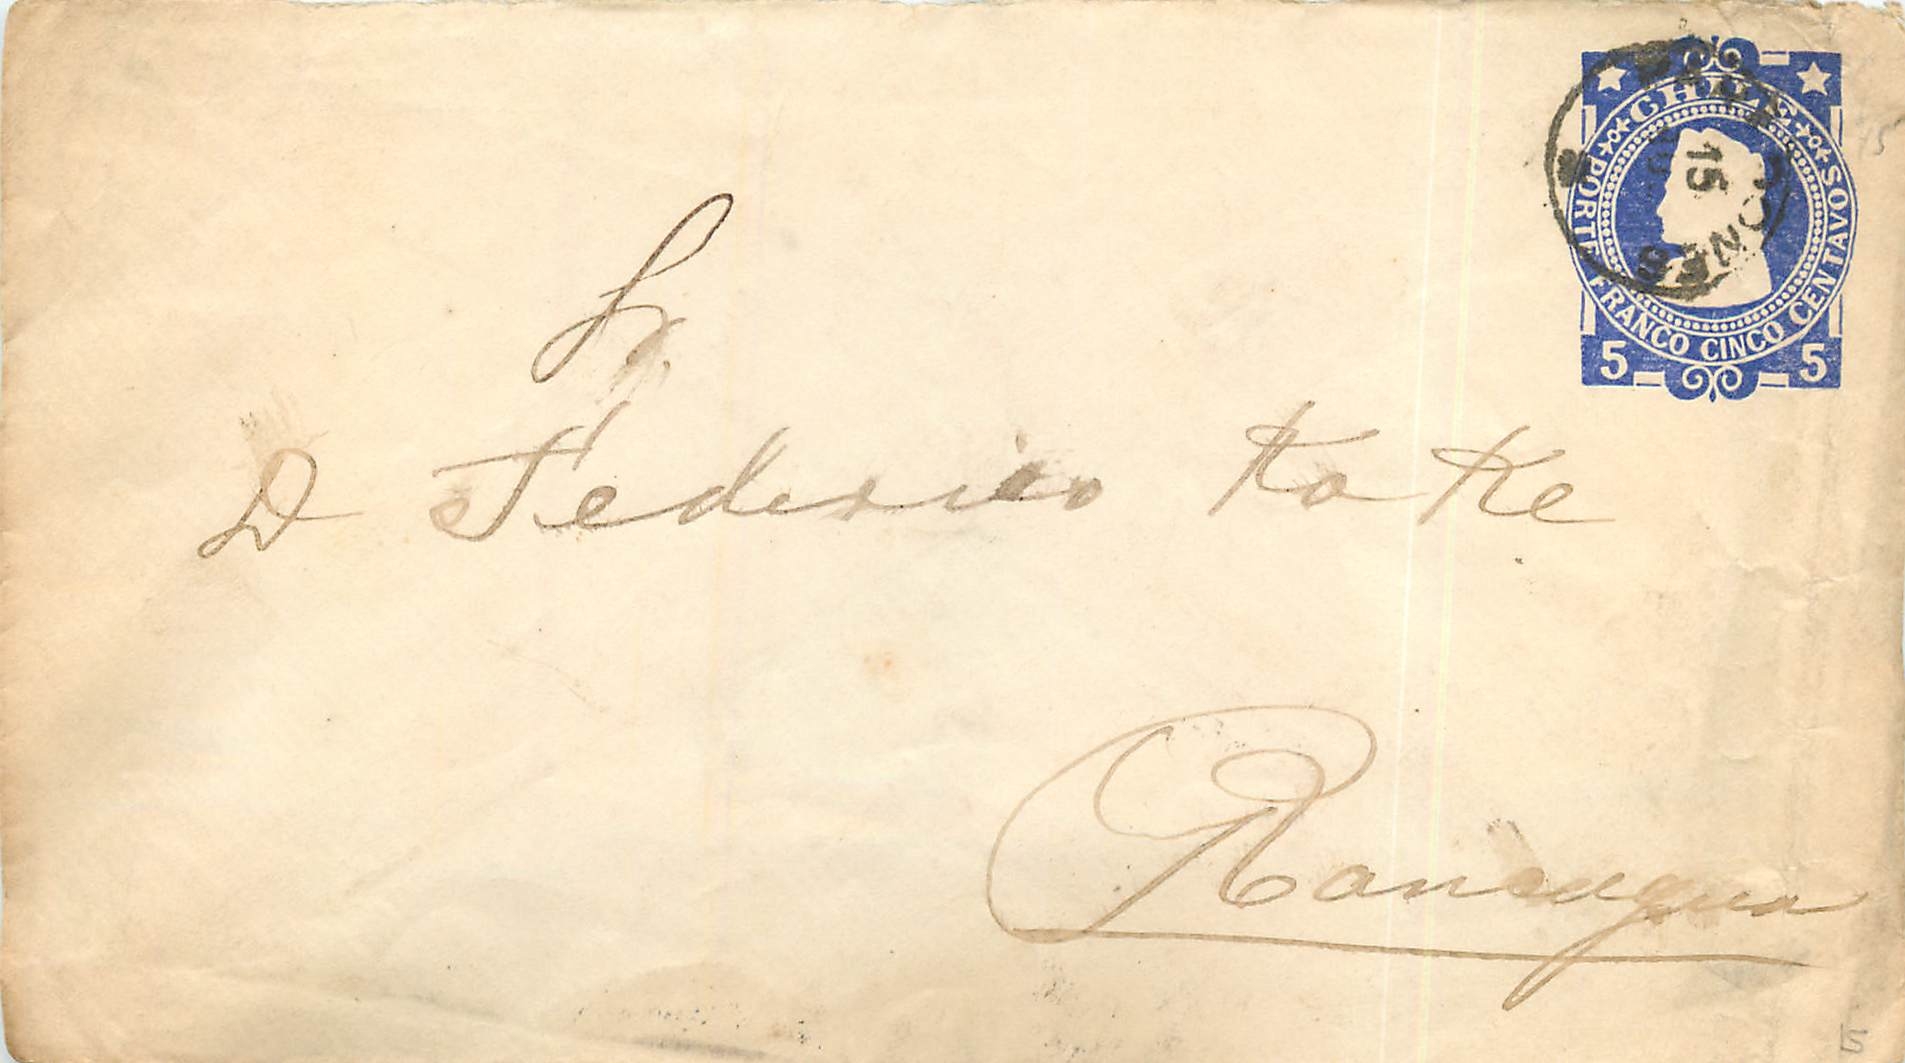 CHILE
PORTE FRANCO CINCO CENTAVOS
5 5
15
Sr
D Federico KoKe
Rancagua
15
5